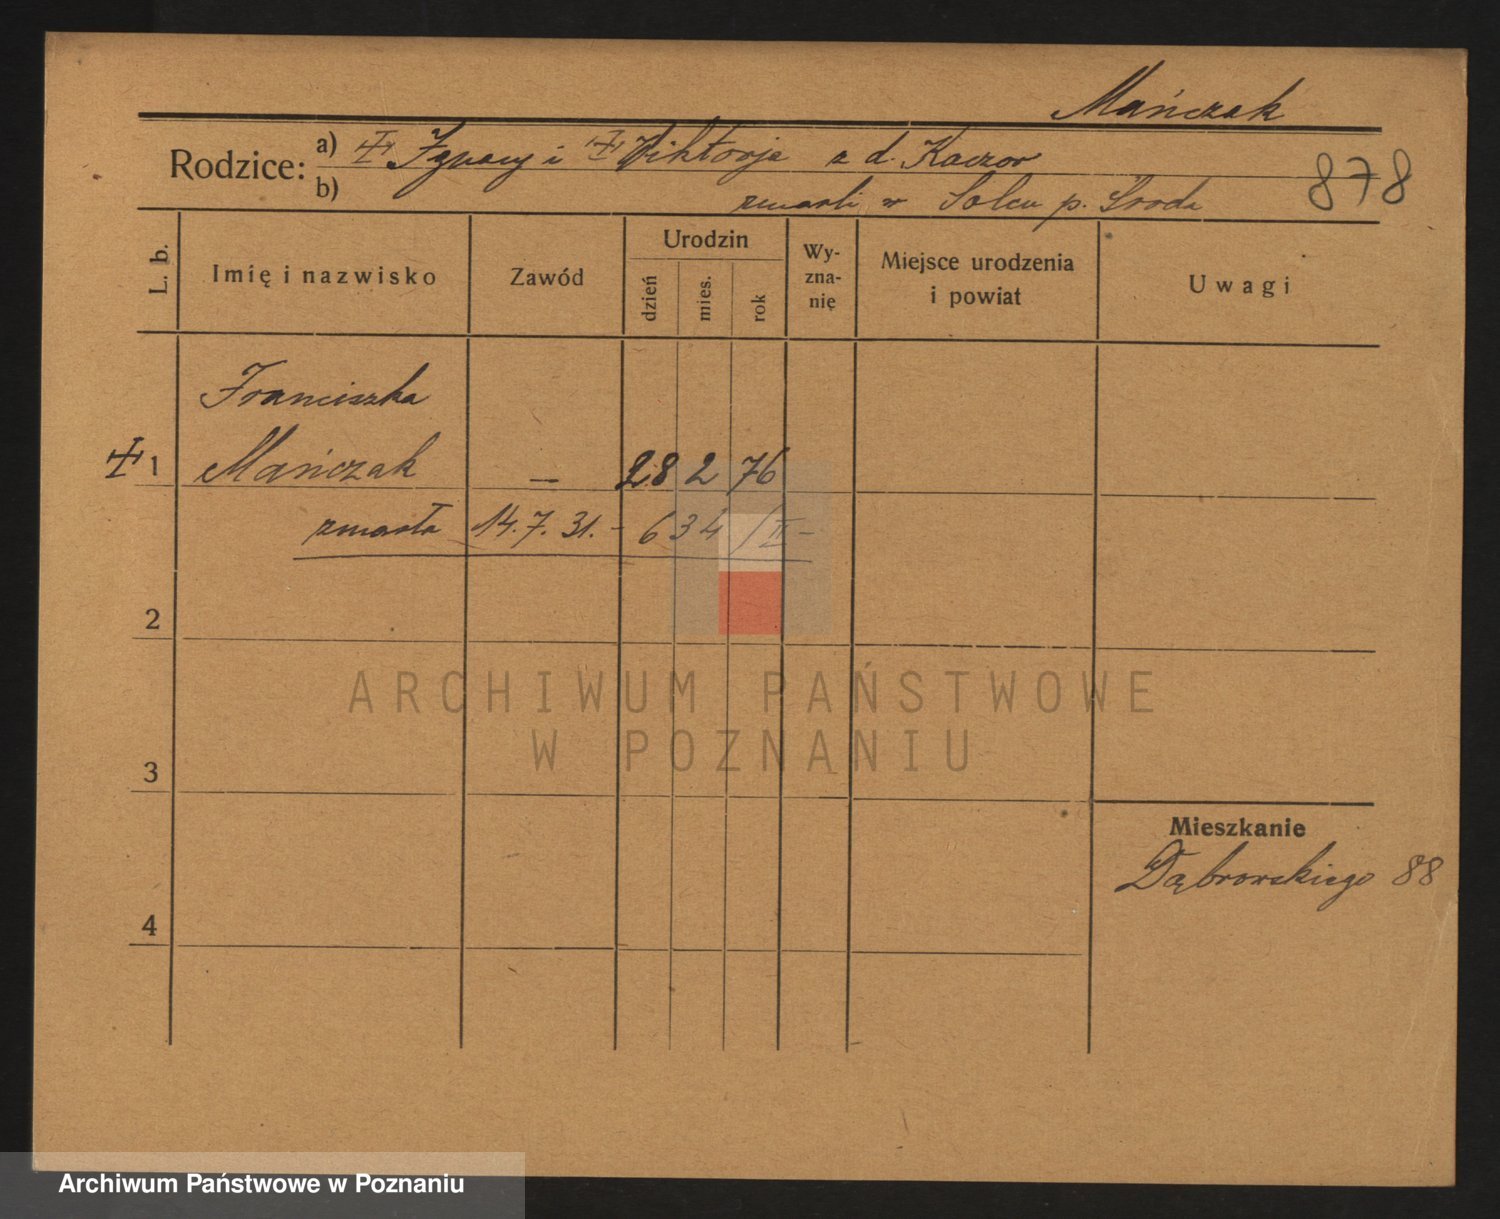 Mańczak
Rodzice: a) Ignacy i Wiktorja z d. Kaczor
b) zmarli w Solcu p. Środa
878
L. b.
Imię i nazwisko
Zawód
Urodzin
dzień
mies.
rok
Wy-
zna-
nię
Miejsce urodzenia
i powiat
Uwagi
Franciszka
1 Mańczak — 28 2 76
zmarła 14.7.31. - 634/II -
2
3
4
Mieszkanie
Dąbrowskiego 88
ARCHIWUM PAŃSTWOWE
W POZNANIU
Archiwum Państwowe w Poznaniu